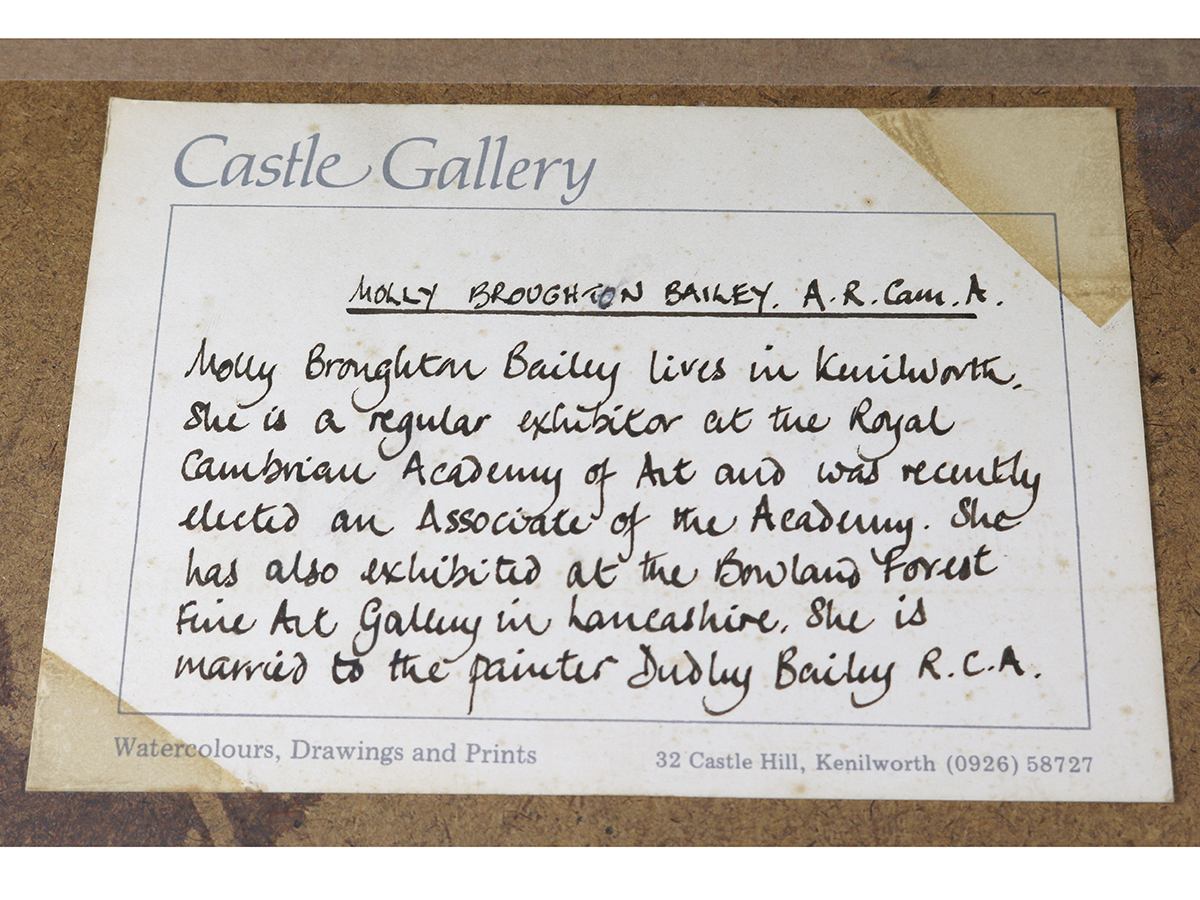 Castle Gallery
MOLLY BROUGHTON BAILEY. A.R.Cam.A.
Molly Broughton Bailey lives in Kenilworth.
She is a regular exhibitor at the Royal
Cambrian Academy of Art and was recently
elected an Associate of the Academy. She
has also exhibited at the Bowland Forest
Fine Art Gallery in Lancashire. She is
married to the painter Dudley Bailey R.C.A.
Watercolours, Drawings and Prints
32 Castle Hill, Kenilworth (0926) 58727